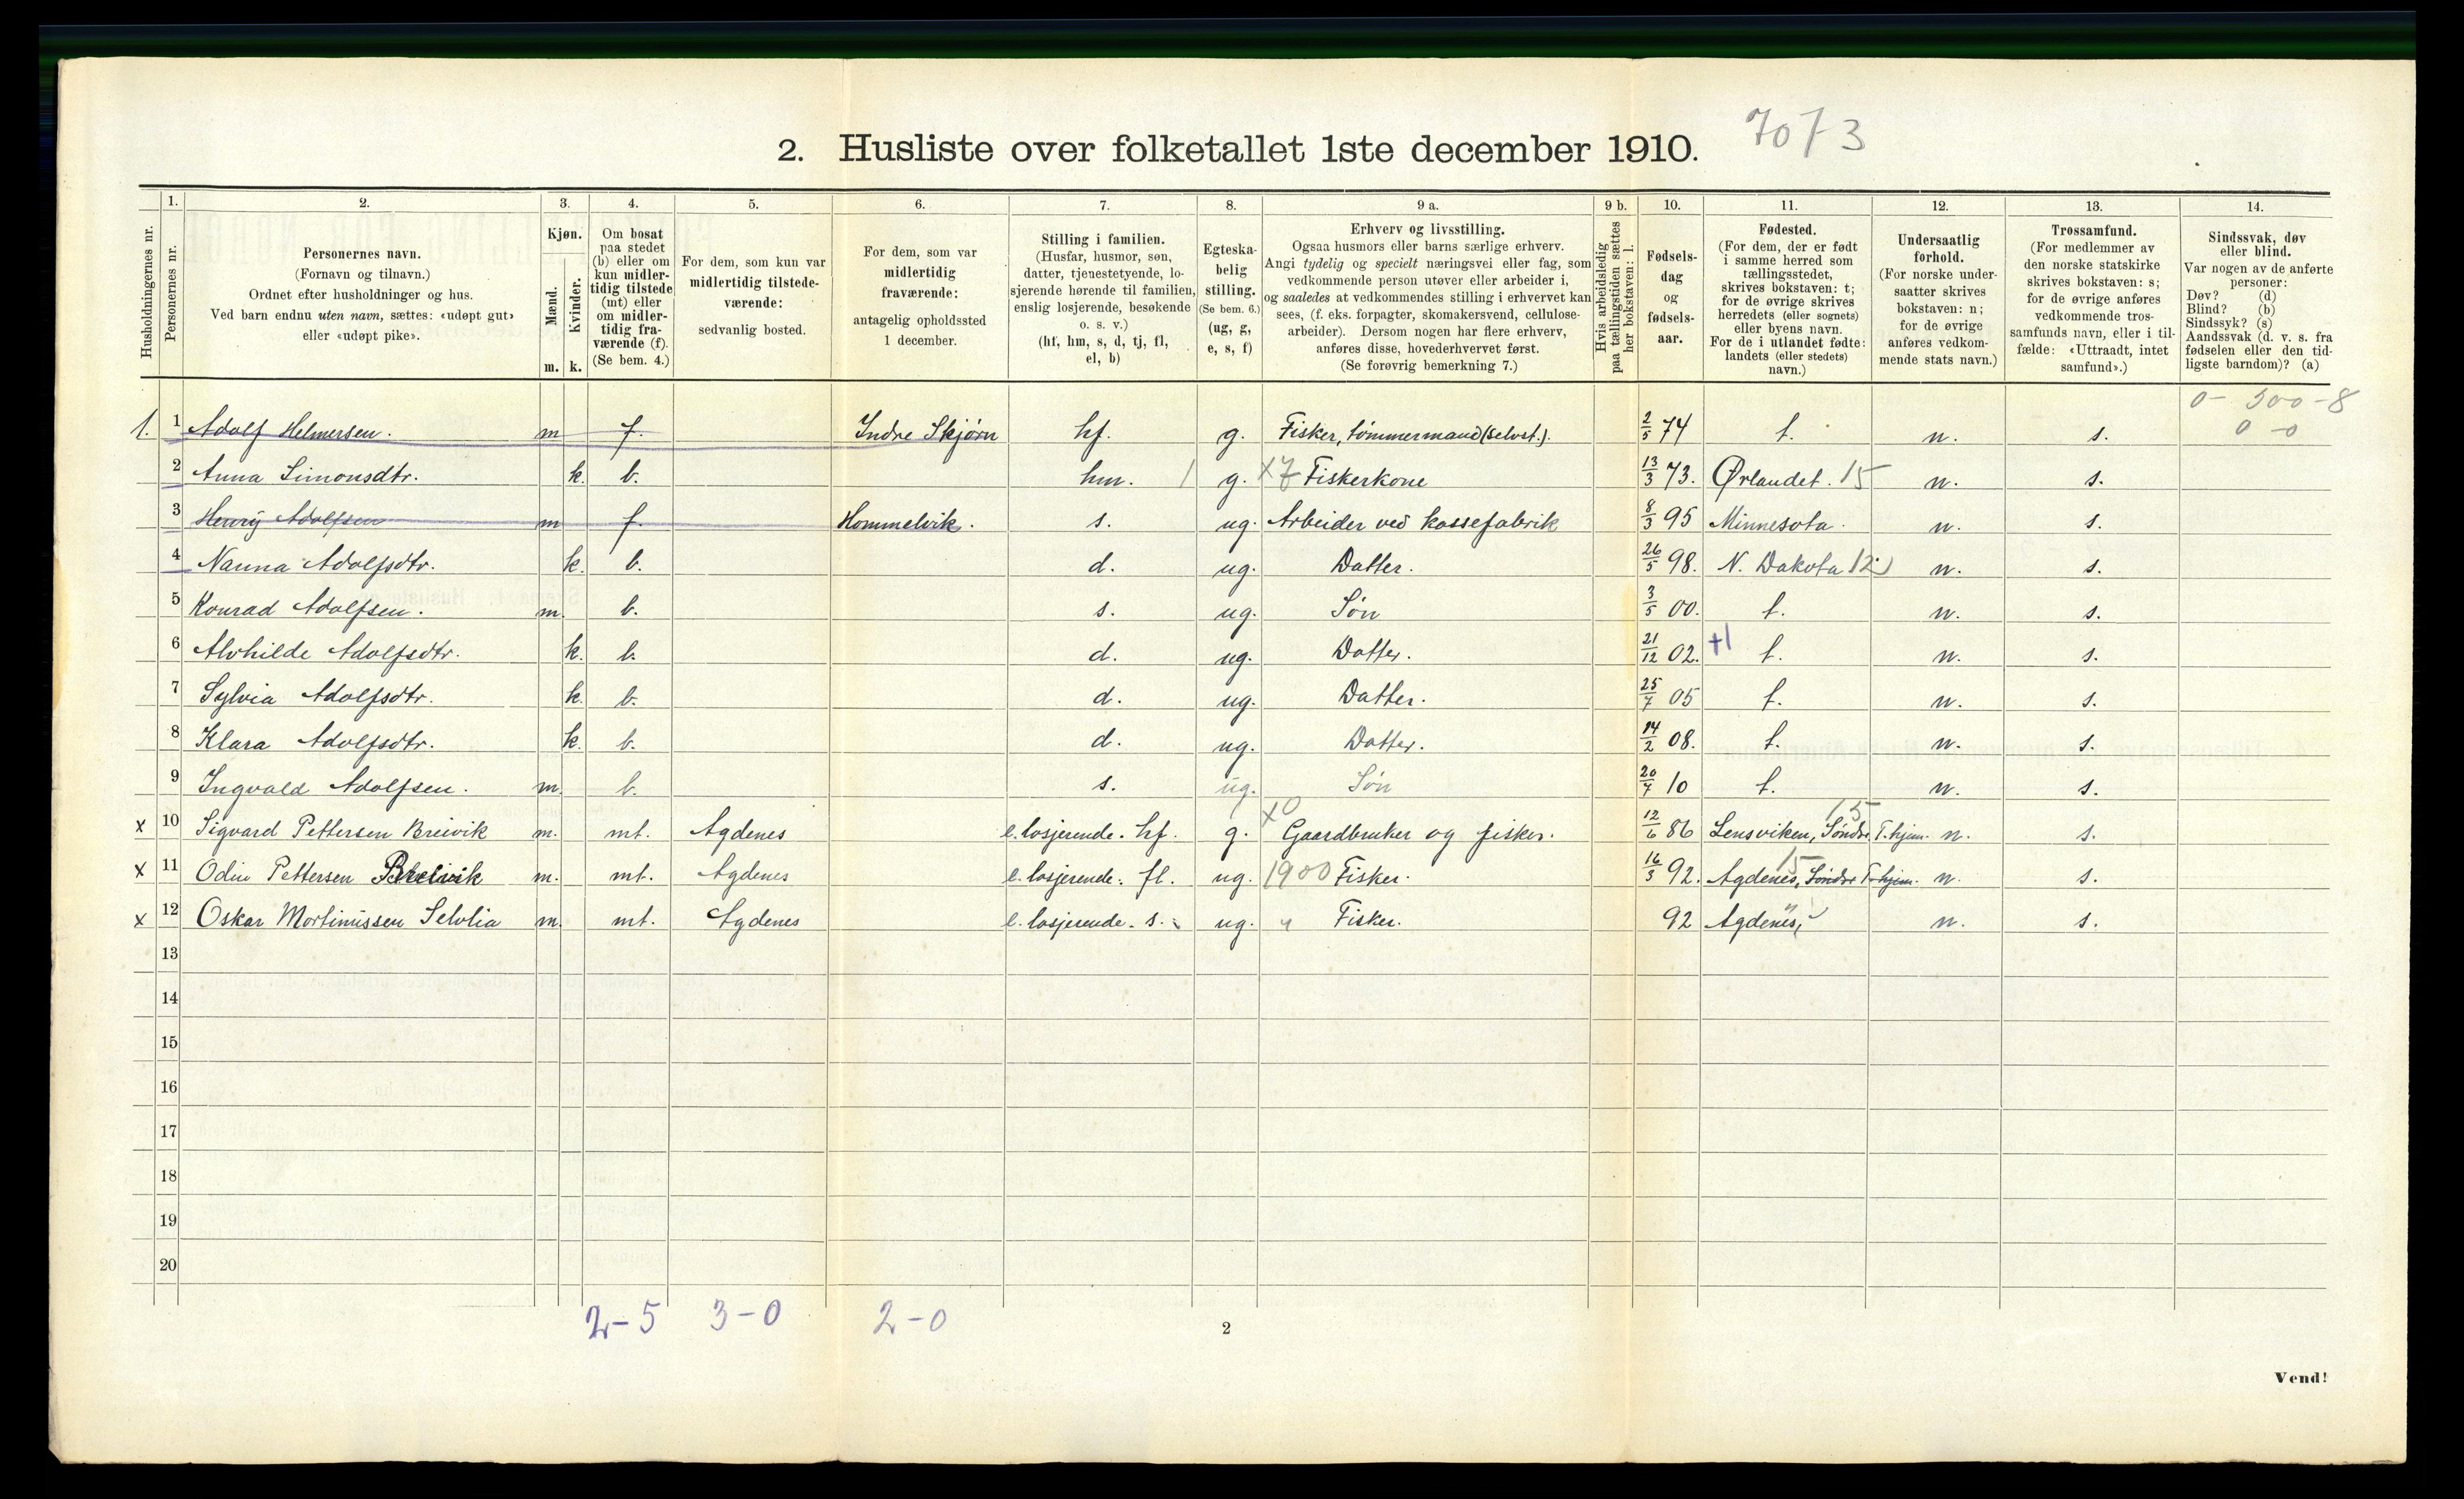 2. Husliste over folketallet 1ste december 1910. 7073
Husholdningernes nr.
1. Personernes nr.
2. Personernes navn.
(Fornavn og tilnavn.)
Ordnet efter husholdninger og hus.
Ved barn endnu uten navn, sættes: «udøpt gut»
eller «udøpt pike».
3. Kjøn.
Mænd. m.
Kvinder. k.
4. Om bosat
paa stedet
(b) eller om
kun midler-
tidig tilstede
(mt) eller
om midler-
tidig fra-
værende (f).
(Se bem. 4.)
5. For dem, som kun var
midlertidig tilstede-
værende:
sedvanlig bosted.
6. For dem, som var
midlertidig
fraværende:
antagelig opholdssted
1 december.
7. Stilling i familien.
(Husfar, husmor, søn,
datter, tjenestetyende, lo-
sjerende hørende til familien,
enslig losjerende, besøkende
o. s. v.)
(hf, hm, s, d, tj, fl,
el, b)
8. Egteska-
belig
stilling.
(Se bem. 6.)
(ug, g,
e, s, f)
9 a. Erhverv og livsstilling.
Ogsaa husmors eller barns særlige erhverv.
Angi tydelig og specielt næringsvei eller fag, som
vedkommende person utøver eller arbeider i,
og saaledes at vedkommendes stilling i erhvervet kan
sees, (f. eks. forpagter, skomakersvend, cellulose-
arbeider). Dersom nogen har flere erhverv,
anføres disse, hovederhvervet først.
(Se forøvrig bemerkning 7.)
9 b. Hvis arbeidsledig
paa tællingstiden sættes
her bokstaven: l.
10. Fødsels-
dag
og
fødsels-
aar.
11. Fødested.
(For dem, der er født
i samme herred som
tællingsstedet,
skrives bokstaven: t;
for de øvrige skrives
herredets (eller sognets)
eller byens navn.
For de i utlandet fødte:
landets (eller stedets)
navn.)
12. Undersaatlig
forhold.
(For norske under-
saatter skrives
bokstaven: n;
for de øvrige
anføres vedkom-
mende stats navn.)
13. Trossamfund.
(For medlemmer av
den norske statskirke
skrives bokstaven: s;
for de øvrige anføres
vedkommende tros-
samfunds navn, eller i til-
fælde: «Uttraadt, intet
samfund».)
14. Sindssvak, døv
eller blind.
Var nogen av de anførte
personer:
Døv? (d)
Blind? (b)
Sindssyk? (s)
Aandssvak (d. v. s. fra
fødselen eller den tid-
ligste barndom)? (a)
0 - 500 - 8
0 - 0
1. 1 Adolf Helmersen. m f. Indre Skjørn hf. g. Fisker, tømmermand (selvst.). 2/5 74 t. n. s.
2 Anna Simonsdtr. k. b. hm. 1 g. x7 Fiskerkone 13/3 73. Ørlandet. 15 n. s.
3 Henry Adolfsen m f. Hommelvik. s. ug. Arbeider ved kassefabrik 8/3 95 Minnesota. n. s.
4 Nanna Adolfsdtr. k. b. d. ug. Datter. 26/5 98. N. Dakota 12 n. s.
5 Konrad Adolfsen. m. b. s. ug. Søn 3/5 00. t. n. s.
6 Alvhilde Adolfsdtr. k. b. d. ug. Datter. 21/12 02. +1 t. n. s.
7 Sylvia Adolfsdtr. k. b. d. ug. Datter. 25/7 05 t. n. s.
8 Klara Adolfsdtr. k. b. d. ug. Datter. 14/2 08. t. n. s.
9 Ingvald Adolfsen. m. b. s. ug. Søn 20/7 10 t. n. s.
x 10 Sigvard Pettersen Breivik m. mt. Agdenes e. losjerende. hf. g. x0 Gaardbruker og fisker. 12/6 86 Lensviken, Søndre T.hjem. 15 n. s.
x 11 Odin Pettersen Breivik m. mt. Agdenes e. losjerende. fl. ug. 1900 Fisker. 16/3 92. Agdenes, Søndre T.hjem. 15 n. s.
x 12 Oskar Mortinussen Selvlia m. mt. Agdenes e. losjerende. s. ug. " Fisker. 92 Agdenes, " n. s.
13
14
15
16
17
18
19
20
2-5 3-0 2-0
2
Vend!